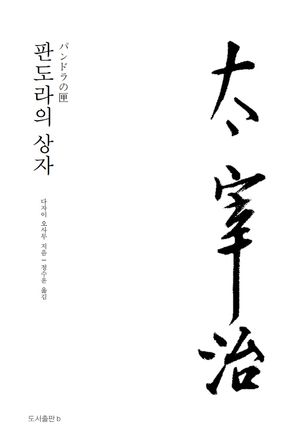 太宰治
パンドラの匣
판도라의 상자
다자이 오사무 지음 ― 정수윤 옮김
도서출판 b